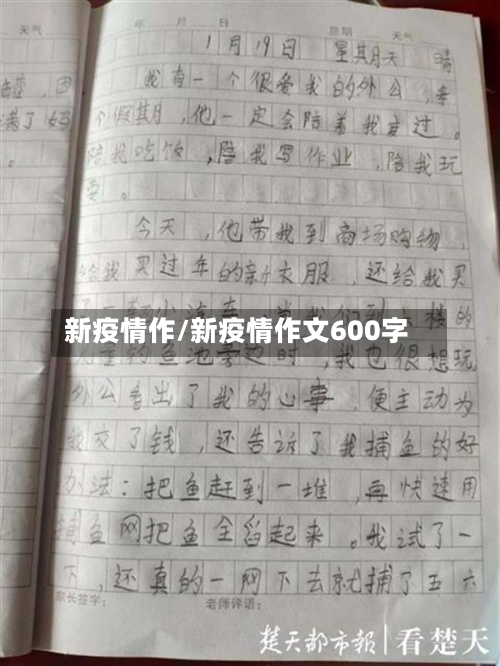 天气
年 月 日 星期 天气
1月19日 星期天 晴
我有一个很爱我的外公,每
个假期,他一定会陪着我度过。
陪我吃饭,陪我写作业,陪我玩
耍。
今天,他带我到商场购物,
给我买过年的新衣服,还给我买
新疫情作/新疫情作文600字
鱼池旁边时,我也很想玩
外公看出了我的心事,便主动为
我交了钱,还告诉了我捕鱼的好
办法:把鱼赶到一堆,再快速用
捕鱼网把鱼全舀起来。我试了一
下,还真的一网下去就捕了五六
家长签字: 老师评语:
楚天都市报 看楚天